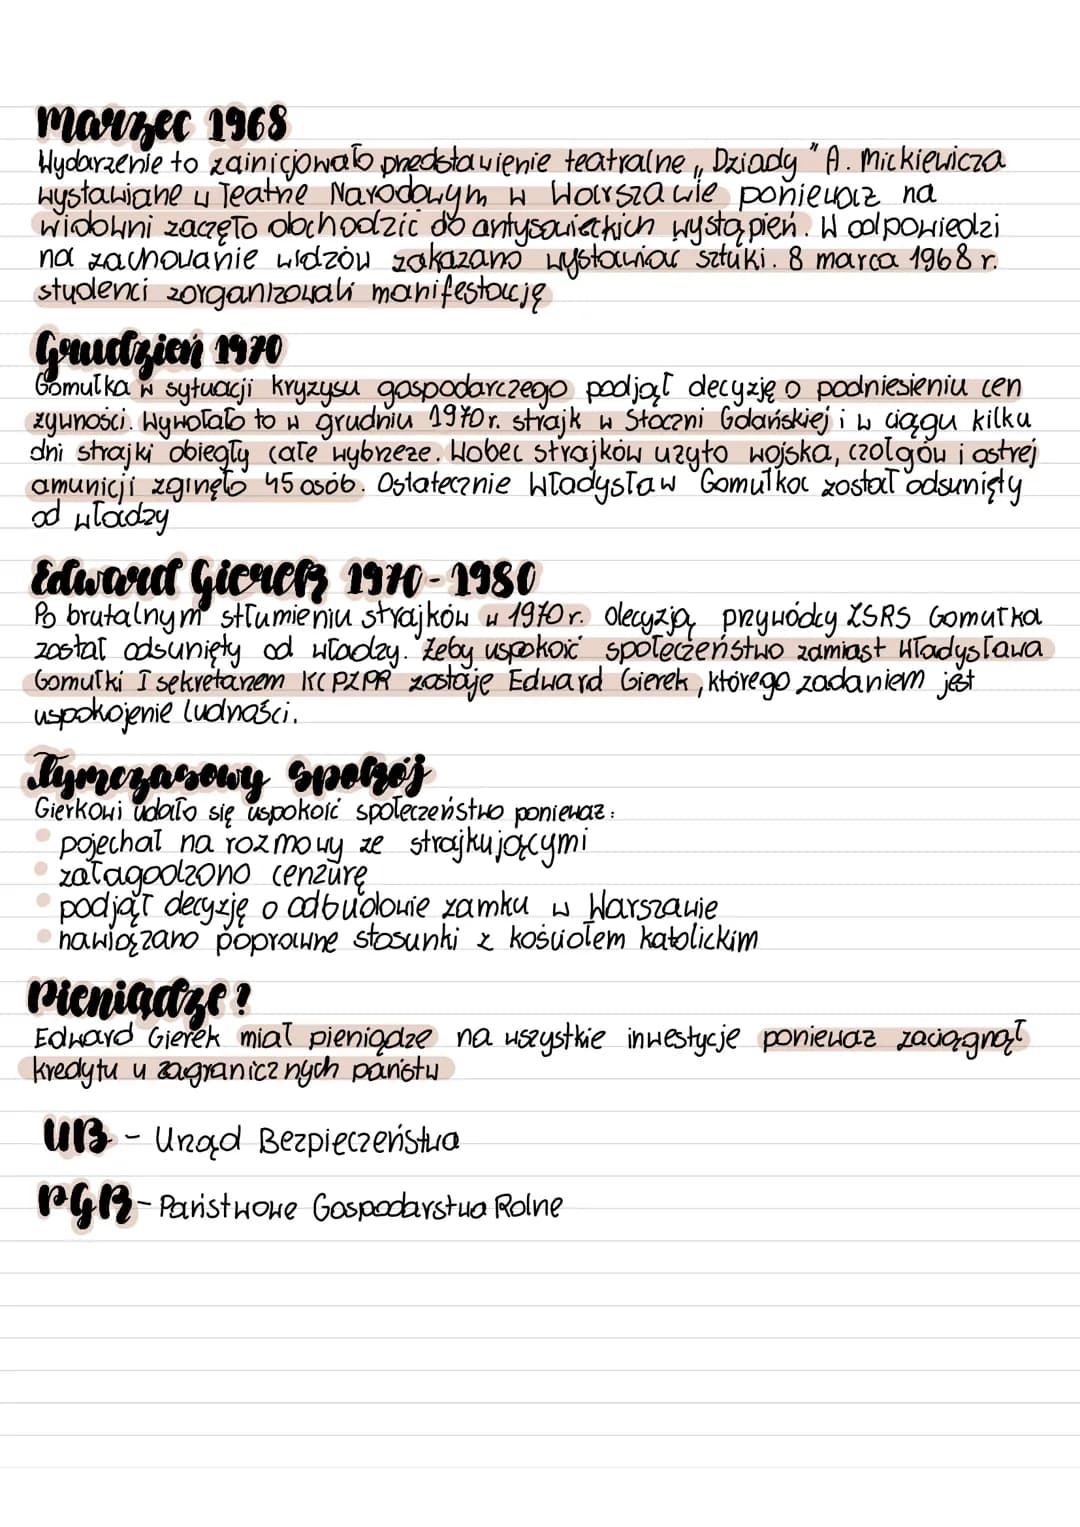 Marzec 1968
Wydarzenie to zainicjowało predstawienie teatralne „Dziady" A. Mickiewicza
wystawiane w Teatrze Narodowym w Warszawie ponieważ na
widowni zaczęło obchodzić do antysowieckich wystąpień. W odpowiedzi
na zachowanie widzów zakazano wystawiać sztuki. 8 marca 1968 r.
studenci zorganizowali manifestację
Grudzień 1970
Gomułka w sytuacji kryzysu gospodarczego podjął decyzję o podniesieniu cen
żywności. Wywołało to w grudniu 1970r. strajk w Stoczni Gdańskiej i w ciągu kilku
dni strajki obiegły całe wybrzeże. Wobec strajków użyto wojska, czołgów i ostrej
amunicji zginęło 45 osób. Ostatecznie Władysław Gomułka został odsunięty
od władzy
Edward Gierek 1970-1980
Po brutalnym stłumieniu strajków w 1970 r. decyzją przywódcy ZSRS Gomułka
został odsunięty od władzy. Żeby uspokoić społeczeństwo zamiast Władysława
Gomułki I sekretarzem KC PZPR zostaje Edward Gierek, którego zadaniem jest
uspokojenie ludności.
Tymczasowy spokój
Gierkowi udało się uspokoić społeczeństwo ponieważ:
• pojechał na rozmowy ze strajkującymi
• załagodzono cenzurę
• podjął decyzję o odbudowie zamku w Warszawie
• nawiązano poprawne stosunki z kościołem katolickim
Pieniądze?
Edward Gierek miał pieniądze na wszystkie inwestycje ponieważ zaciągnął
kredyty w zagranicznych państw
UB - Urząd Bezpieczeństwa
PGR - Państwowe Gospodarstwa Rolne